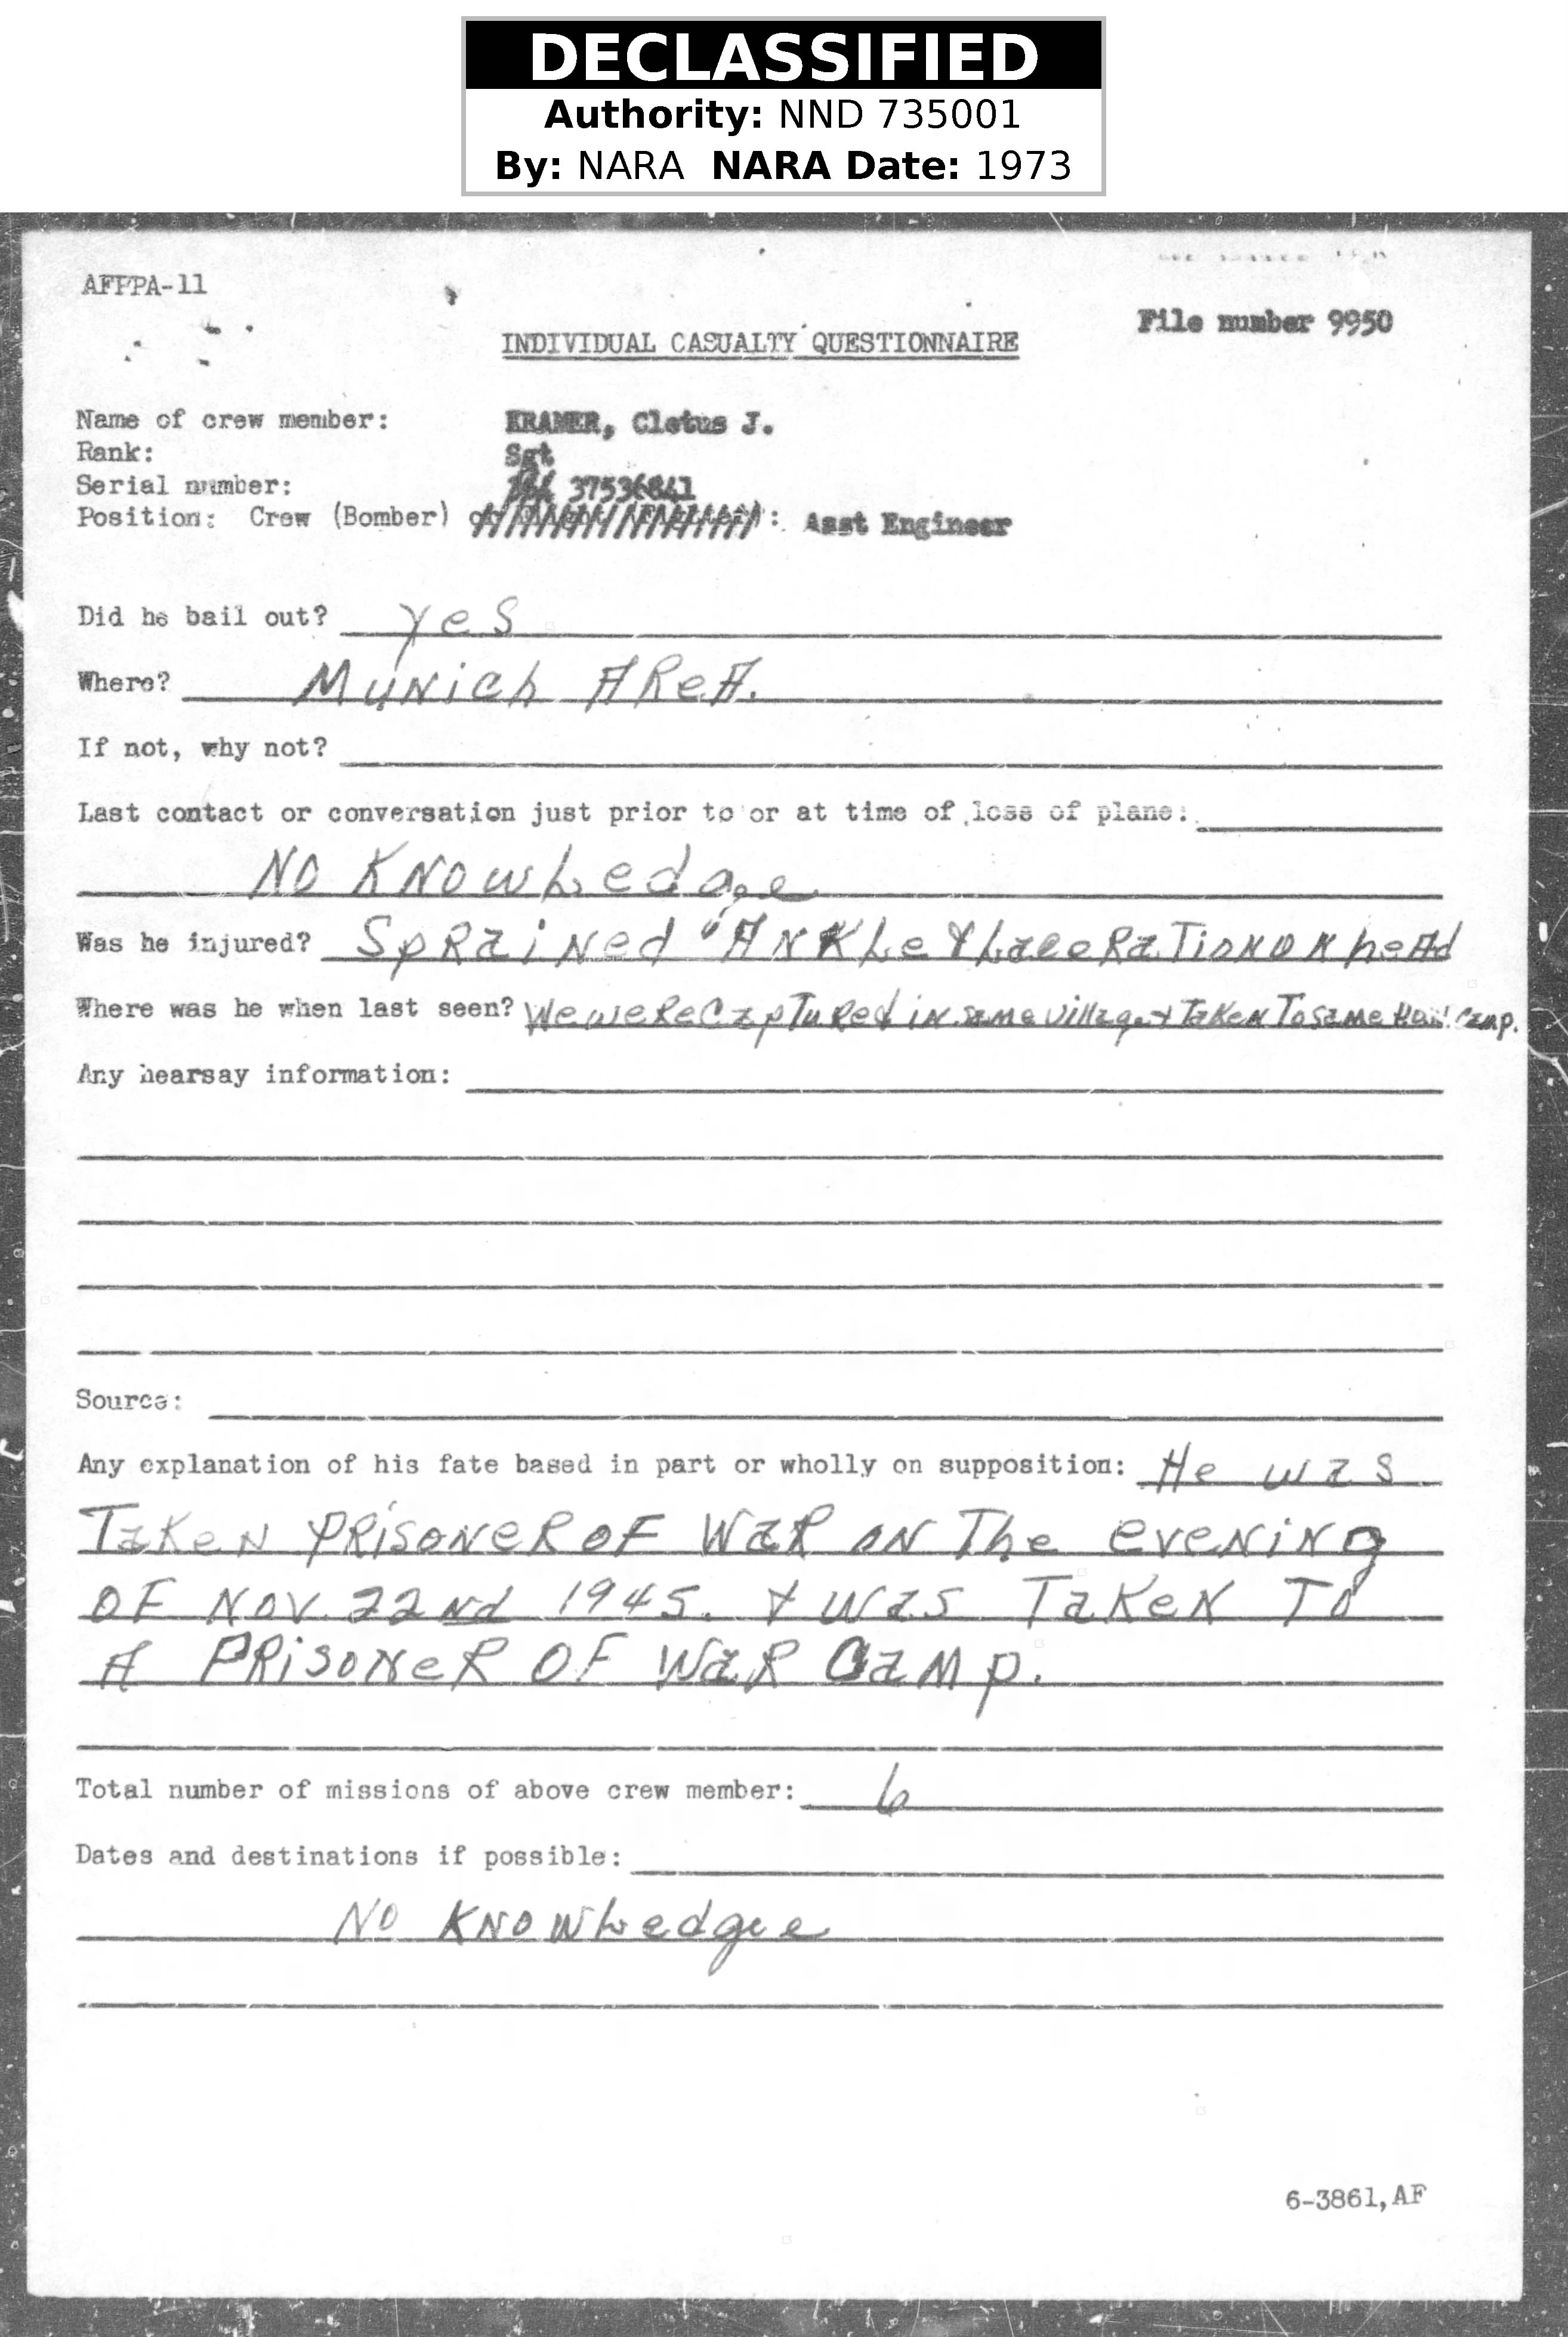 DECLASSIFIED
Authority: NND 735001
By: NARA NARA Date: 1973
AFPPA-11
File number 9950
INDIVIDUAL CASUALTY QUESTIONNAIRE
Name of crew member: KRAMER, Cletus J.
Rank: Sgt
Serial number: 37536841
Position: Crew (Bomber) : Asst Engineer
Did he bail out? yes
Where? Munich AReA.
If not, why not?
Last contact or conversation just prior to or at time of loss of plane:
NO KNOwLedge
Was he injured? SpRained ANKLe & LaceRaTion ON heAd
Where was he when last seen? We weRe CapTuRed iN same village & TaKeN To same Camp.
Any hearsay information:
Source:
Any explanation of his fate based in part or wholly on supposition: He was
TaKeN PRiSONeR OF WaR ON The eveNiNg
OF NOV. 22Nd 1945. & was TaKeN TO
A PRiSONeR OF WaR CaMp.
Total number of missions of above crew member: 6
Dates and destinations if possible:
NO KNOwLedge
6-3861,AF